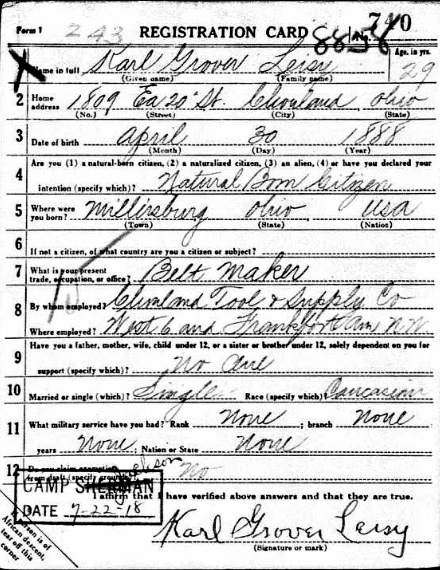 Form 1 243 REGISTRATION CARD No. 740
Age, in yrs.
1 Name in full Karl Grover Leisy 29
(Given name) (Family name)
2 Home address 1809 Ea 20 St. Cleveland Ohio
(No.) (Street) (City) (State)
3 Date of birth April 30 1888
(Month) (Day) (Year)
4 Are you (1) a natural-born citizen, (2) a naturalized citizen, (3) an alien, (4) or have you declared your
intention (specify which)? Natural Born Citizen
5 Where were you born? Millersburg Ohio USA
(Town) (State) (Nation)
6 If not a citizen, of what country are you a citizen or subject?
7 What is your present trade, occupation, or office? Belt Maker
8 By whom employed? Cleveland Tool & Supply Co
Where employed? West 6 and Frankfort Ave N.W.
9 Have you a father, mother, wife, child under 12, or a sister or brother under 12, solely dependent on you for
support (specify which)? No one
10 Married or single (which)? Single Race (specify which)? Caucasian
11 What military service have you had? Rank None ; branch None
years None ; Nation or State None
12 Do you claim exemption No
CAMP SHERMAN
I affirm that I have verified above answers and that they are true.
DATE 7-22-18
Karl Grover Leisy
(Signature or mark)
If person is of
African descent,
tear off this
corner